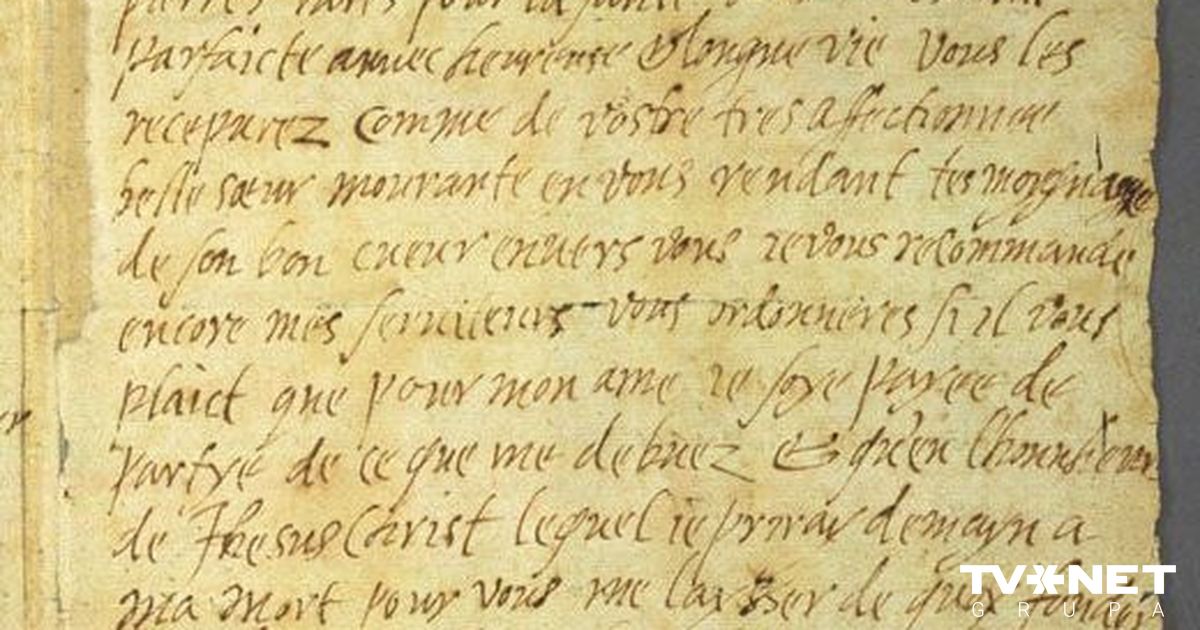 pierres rares pour la sante
parfaicte avvec heureuse & longue vie Vous les
receparez comme de vostre tres affectionnee
belle sœur mourante en vous rendant tesmoygnasge
de son bon cueur envers vous ie vous recommande
encore mes serviteurs vous ordonneres si il vous
plaict que pour mon ame ie soye payee de
partye de ce que me debvez & qu'en l'honneur
de Jhesus Christ lequel ie priray demayn a
ma mort pour vous me laysser de quoy fonder
TVNET
GRUPA